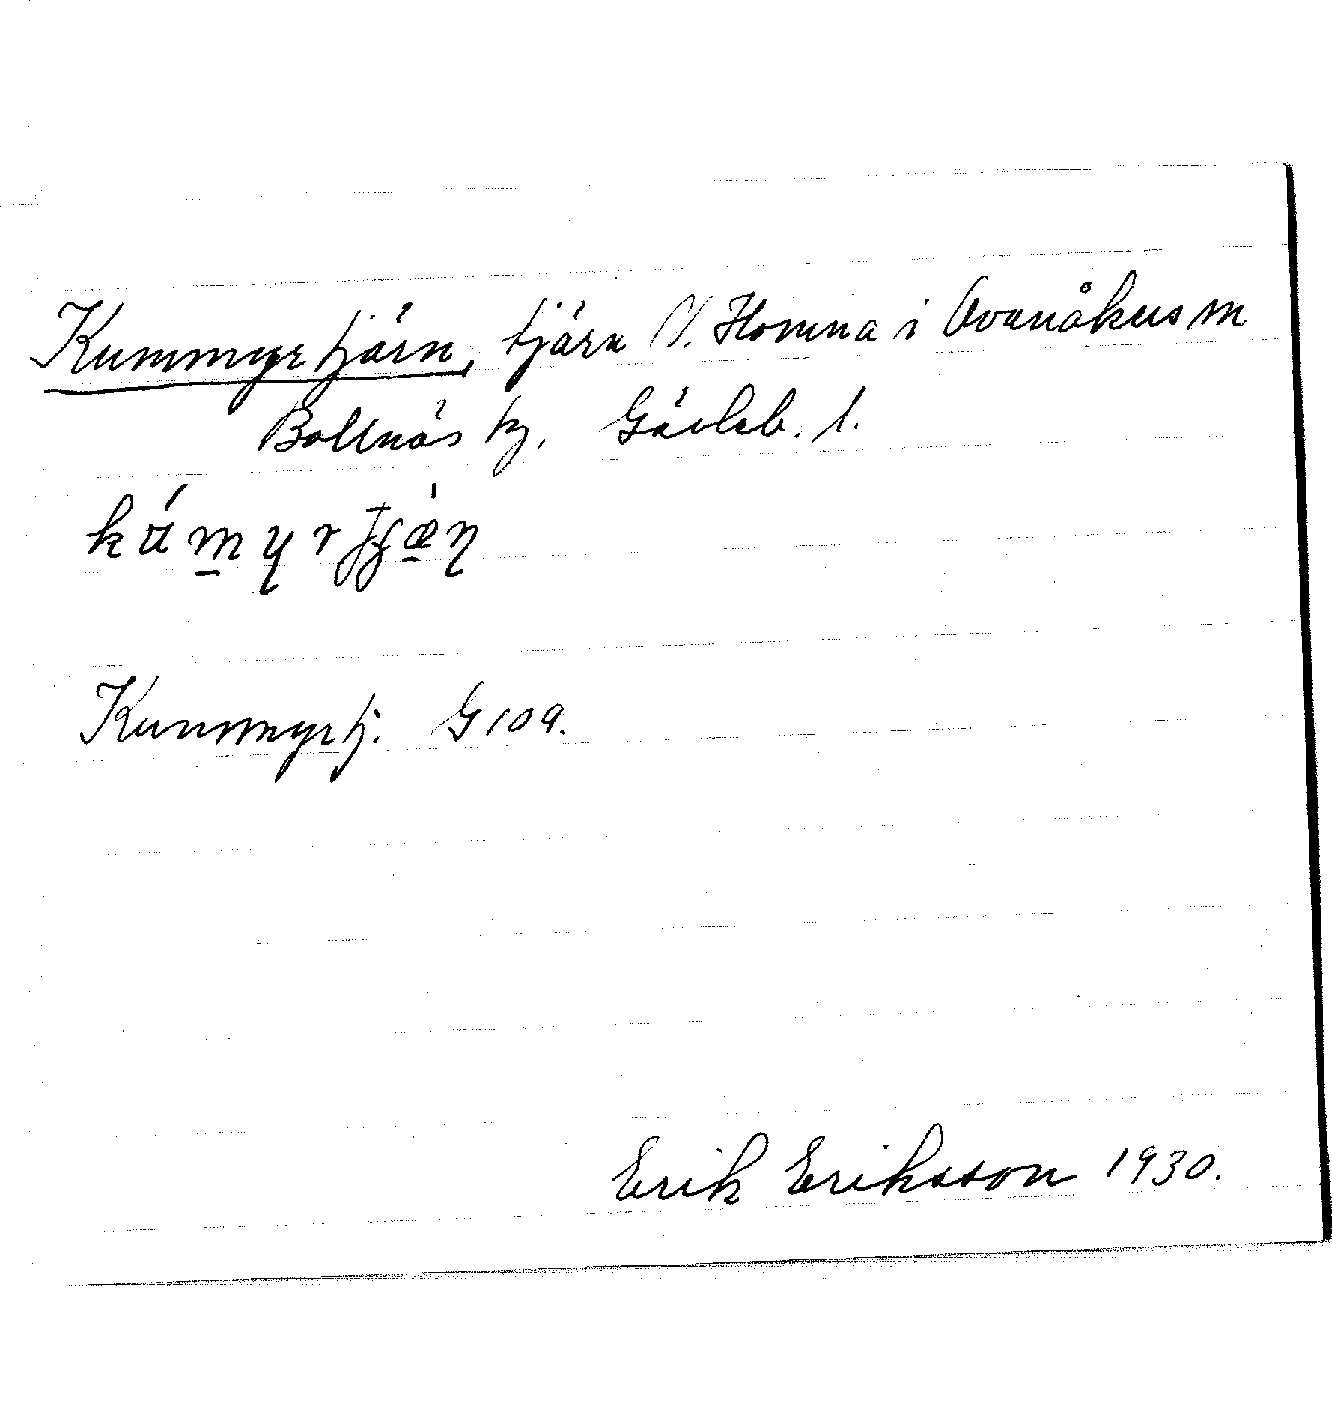 Kummyrtjärn, tjärn V. Homna i Ovanåkers sn
Bollnäs tg. Gävleb. l.
Kummyrtj. G 109.
Erik Eriksson 1930.